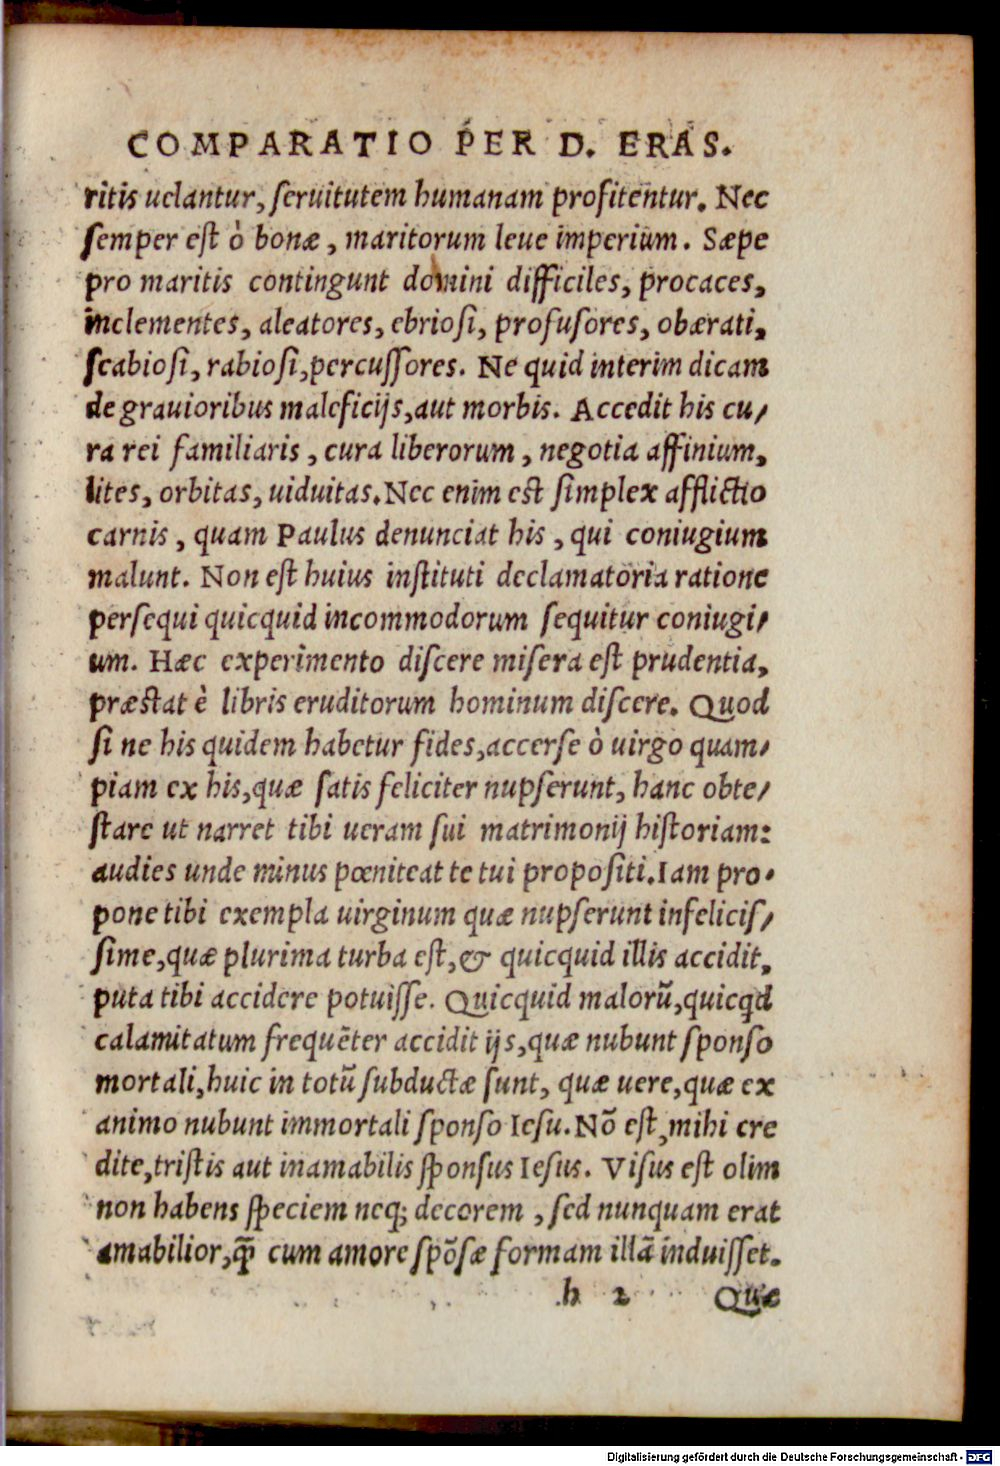 COMPARATIO PER D. ERAS.
ritis uelantur, ſeruitutem humanam profitentur. Nec
ſemper eſt ò bonæ, maritorum leue imperium. Sæpe
pro maritis contingunt domini difficiles, procaces,
inclementes, aleatores, ebrioſi, profuſores, obærati,
ſcabioſi, rabioſi, percuſſores. Ne quid interim dicam
de grauioribus maleficijs, aut morbis. Accedit his cu/
ra rei familiaris, cura liberorum, negotia affinium,
lites, orbitas, uiduitas. Nec enim eſt ſimplex afflictio
carnis, quam Paulus denunciat his, qui coniugium
malunt. Non eſt huius inſtituti declamatoria ratione
perſequi quicquid incommodorum ſequitur coniugi/
um. Hæc experimento diſcere miſera eſt prudentia,
præſtat è libris eruditorum hominum diſcere. Quod
ſi ne his quidem habetur fides, accerſe ò uirgo quam/
piam ex his, quæ ſatis feliciter nupſerunt, hanc obte/
ſtare ut narret tibi ueram ſui matrimonij hiſtoriam:
audies unde minus pœniteat te tui propoſiti. Iam pro/
pone tibi exempla uirginum quæ nupſerunt infeliciſ/
ſime, quæ plurima turba eſt, & quicquid illis accidit,
puta tibi accidere potuiſſe. Quicquid malorũ, quicꝗd
calamitatum frequẽter accidit ijs, quæ nubunt ſponſo
mortali, huic in totũ ſubductæ ſunt, quæ uere, quæ ex
animo nubunt immortali ſponſo Ieſu. Nõ eſt, mihi cre
dite, triſtis aut inamabilis ſponſus Ieſus. Viſus eſt olim
non habens ſpeciem neq; decorem, ſed nunquam erat
amabilior, ꝗ̃ cum amore ſpõſæ formam illã induiſſet.
h 2 Quæ
Digitalisierung gefördert durch die Deutsche Forschungsgemeinschaft - DFG